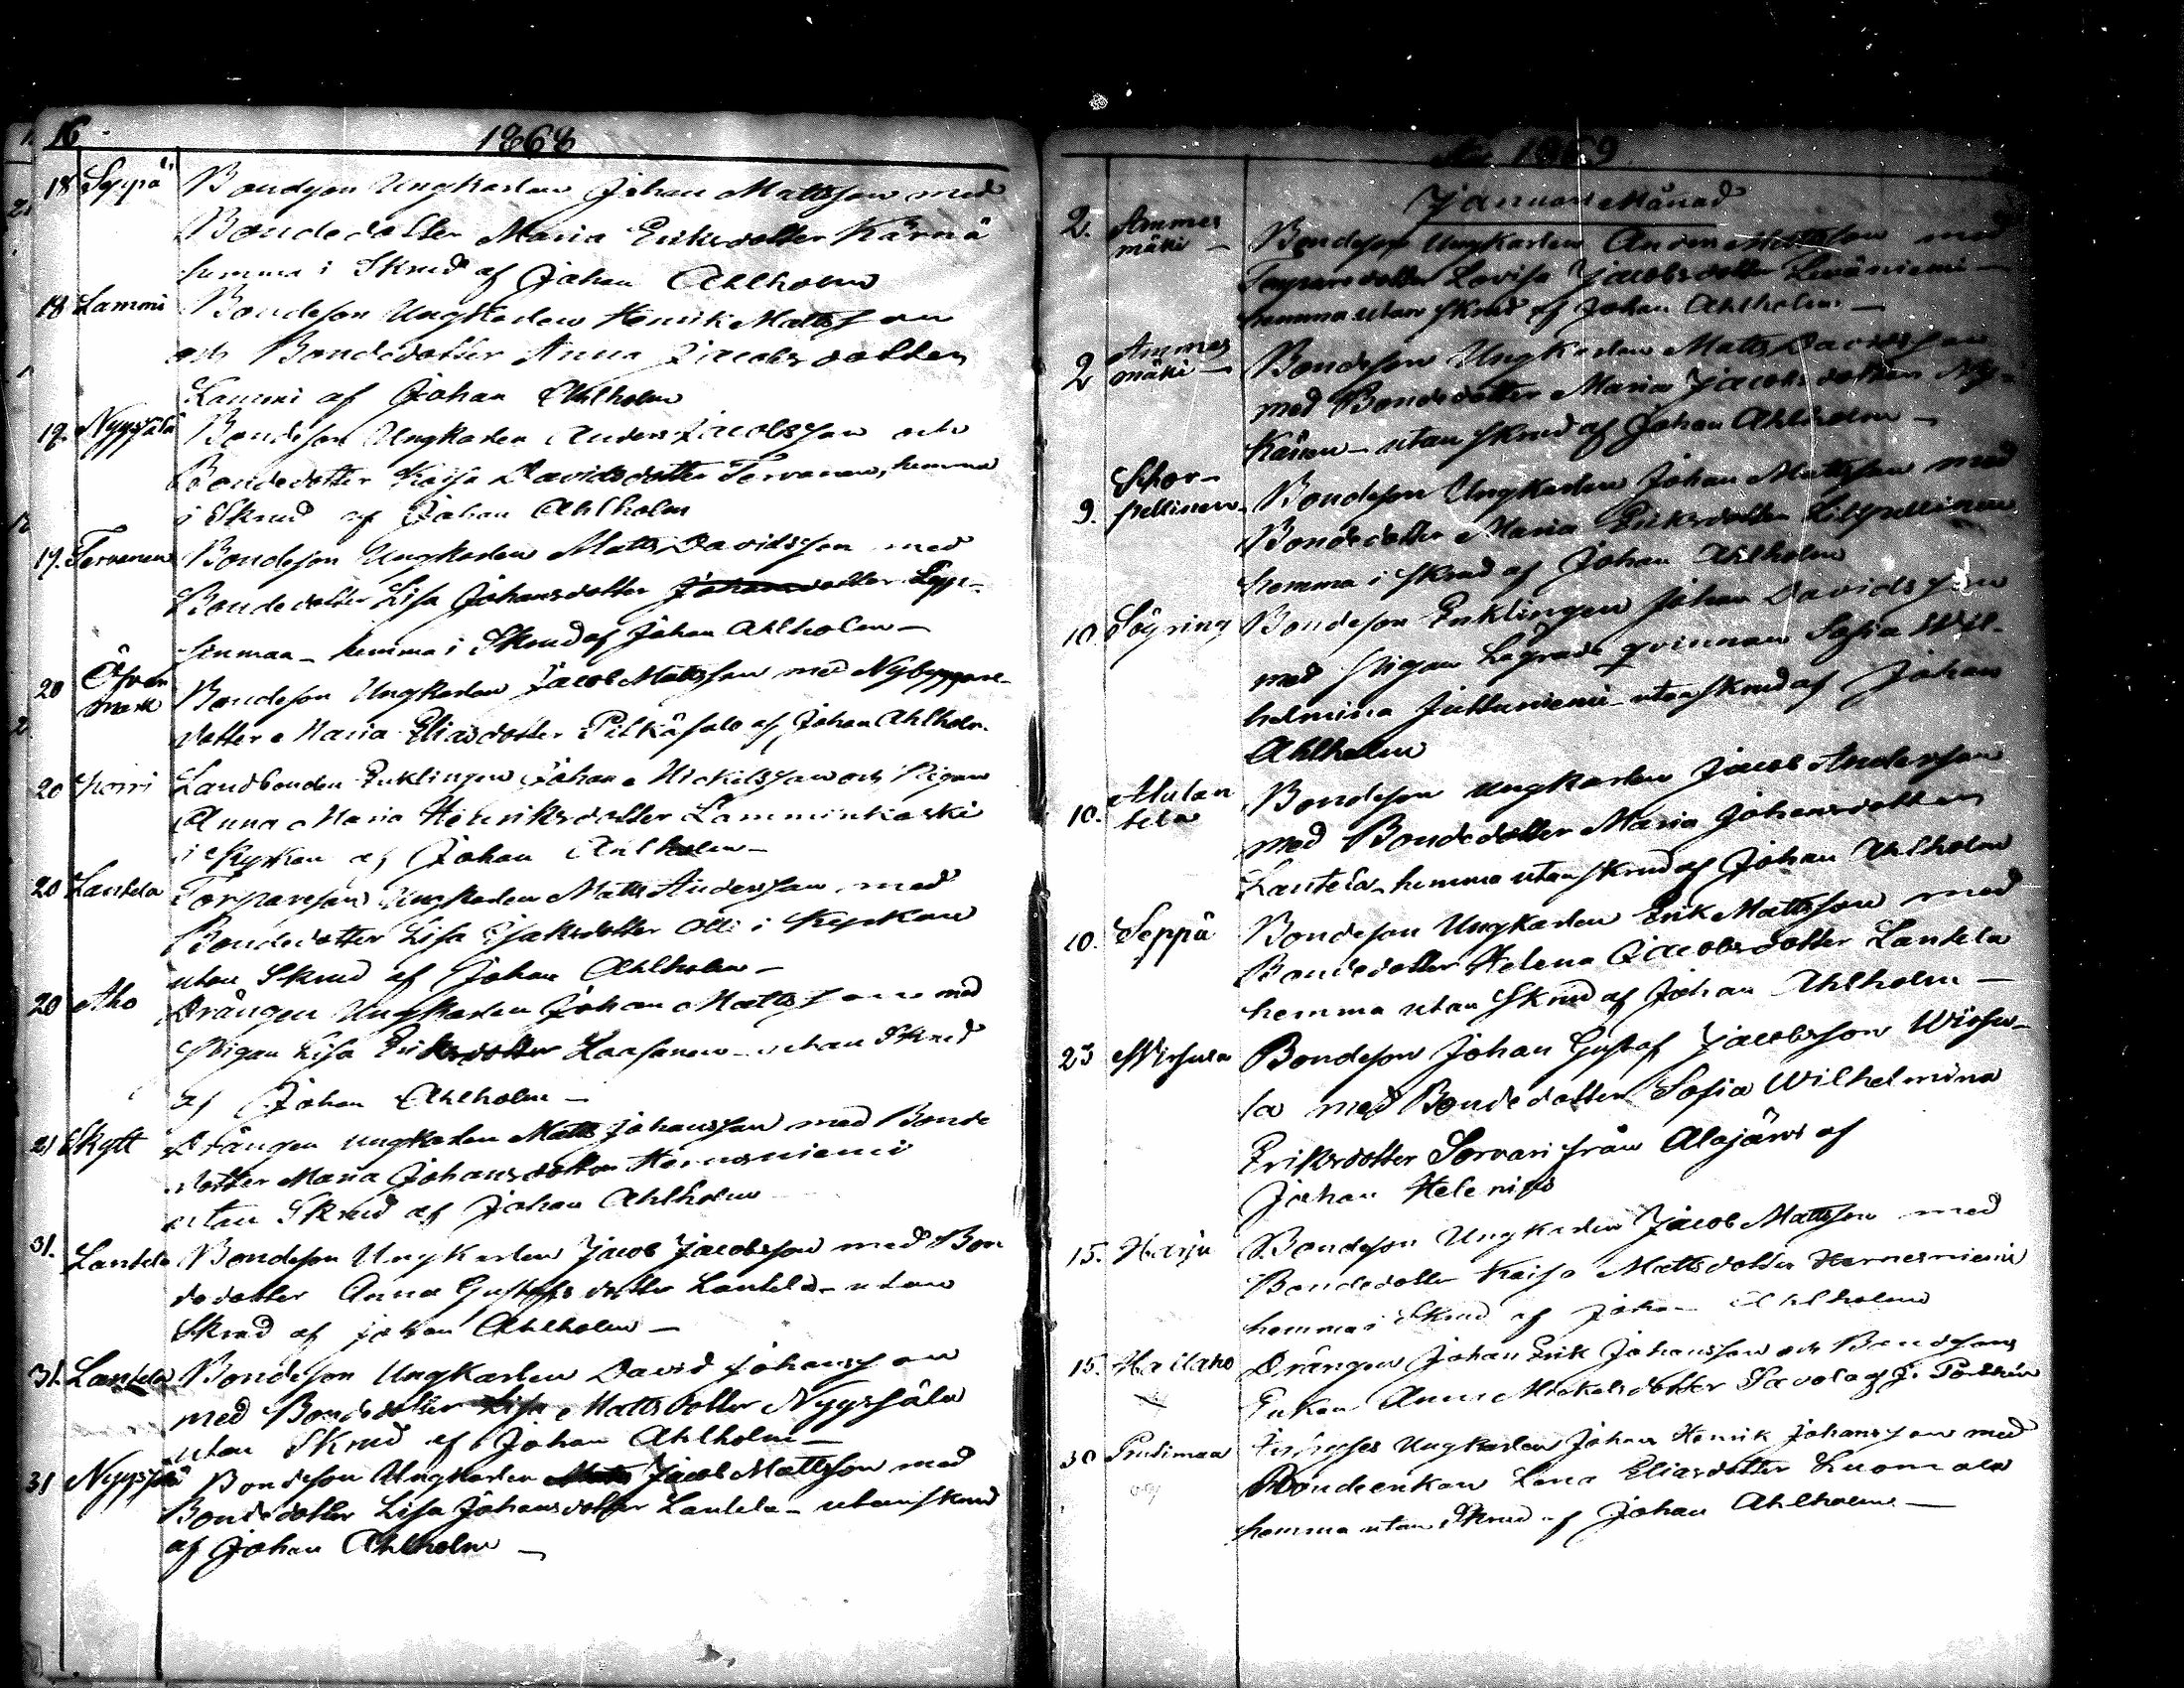 16. 1868
18 Seppä Bondeson Ungkarlen Johan Mattsson med
Bondedotter Maria Eriksdotter Kärnä
hemma i Skrud af Johan Ahlholm
18 Lammi Bondeson Ungkarlen Henrik Mattsson
och Bondedotter Anna Jacobsdotter
Lammi af Johan Ahlholm
19. Nyyssälä Bondeson Ungkarlen Anders Jacobsson och
Bondedotter Kaisa Davidsdotter Tervanen, hemma
i Skrud af Johan Ahlholm
19. Tervanen Bondeson Ungkarlen Matts Davidsson med
Bondedotter Lisa Johansdotter Johansdotter Sep-
hemma i Skrud af Johan Ahlholm —
20 Öfver mark Bondeson Ungkarlen Jacob Mattsson med Nybyggare-
dotter Maria Eliasdotter Pitkäsalo af Johan Ahlholm.
20 Porri Landbonden Enklingen Johan Mickelsson och Pigan
Anna Maria Henriksdotter Lamminkoski
i Kyrkan af Johan Ahlholm —
20 Lantela Torpareson Ungkarlen Matts Andersson med
Bondedotter Lisa Isaksdotter Olli i Kyrkan
utan Skrud af Johan Ahlholm —
20 Aho Drängen Ungkarlen Johan Mattsson med
Pigan Lisa Eriksdotter Haasanen — utan Skrud
af Johan Ahlholm —
21 Skytt Drängen Ungkarlen Matts Johansson med Bonde
dotter Maria Johansdotter Hernesniemi
utan Skrud af Johan Ahlholm
31. Lantela Bondeson Ungkarlen Jacob Jacobsson med Bon
dedotter Anna Gustafsdotter Lantela — utan
Skrud af Johan Ahlholm —
31. Lantela Bondeson Ungkarlen David Johansson
med Bondedotter Lisa Mattsdotter Nyyssälä
utan Skrud af Johan Ahlholm —
31 Nyyssälä Bondeson Ungkarlen Matts Jacob Mattsson med
Bondedotter Lisa Johansdotter Lantela — utan skrud
af Johan Ahlholm —
1869
Januari Månad
2. Ammes mäki — Bondeson Ungkarlen Anders Mattsson med
Torparedotter Lovisa Jacobsdotter Leväniemi —
hemma utan skrud af Johan Ahlholm —
2 Ammes mäki — Bondeson Ungkarlen Matts Davidsson
med Bondedotter Maria Jacobsdotter Ny-
utan skrud af Johan Ahlholm —
9. Stor- pellinen Bondeson Ungkarlen Johan Mattsson med
Bondedotter Maria Eriksdotter Lillpellinen
hemma i skrud af Johan Ahlholm
10. Söyring Bondeson Enklingen Johan Davidsson
med Pigan Lägrade qvinnan Sofia Wil-
helmina Juttuniemi — utan skrud af Johan
Ahlholm
10. Alatan tela Bondeson Ungkarlen Jacob Andersson
med Bondedotter Maria Johansdotter
Lantela — hemma utan skrud af Johan Ahlholm
10. Seppä Bondeson Ungkarlen Erik Mattsson med
Bondedotter Helena Jacobsdotter Lantela
hemma utan Skrud af Johan Ahlholm —
23 Wirsula Bondeson Johan Gustaf Jacobsson Wirsu-
la med Bondedotter Sofia Wilhelmina
Eriksdotter Sorvari från Alajärvi af
Johan Helenius
15. Harju Bondeson Ungkarlen Jacob Mattsson med
Bondedotter Kaisa Mattsdotter Hernesniemi
hemma i Skrud af Johan Ahlholm
15. Hailaho Drängen Johan Erik Johansson och Bondesons
Enkan Anna Mickelsdotter Savola af J.
30 Ungkarlen Johan Henrik Johansson med
Bondeenkan Lena Eliasdotter Luomala
hemma utan Skrud af Johan Ahlholm —